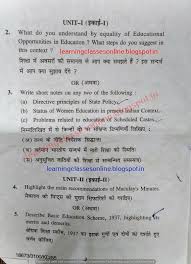 UNIT-I (इकाई-I)
2. What do you understand by equality of Educational
Opportunities in Education ? What steps do you suggest in
this context ?
learningclassesonline.blogspot.in
शिक्षा में अवसरों की समानता से आप क्या समझते हैं ? इस सन्दर्भ
में आप क्या सुझाव देंगे ?
OR (अथवा)
3. Write short notes on any two of the following :
(a) Directive principles of State Policy.
(b) Status of Women Education in present Indian Context.
(c) Problems related to education of Scheduled Castes.
निम्नलिखित में से किन्हीं दो पर संक्षिप्त टिप्पणियां लिखिए :
(अ) राज्य के नीति निर्देशक सिद्धान्त।
learningclassesonline.blogspot.in
UNIT-II (इकाई-II)
4. Highlight the main recommendations of Macaulay's Minutes.
मैकाले के
OR (अथवा)
5. Describe Basic Education Scheme, 1937, highlighting its
merits and demerits.
learningclassesonline.blogspot.in